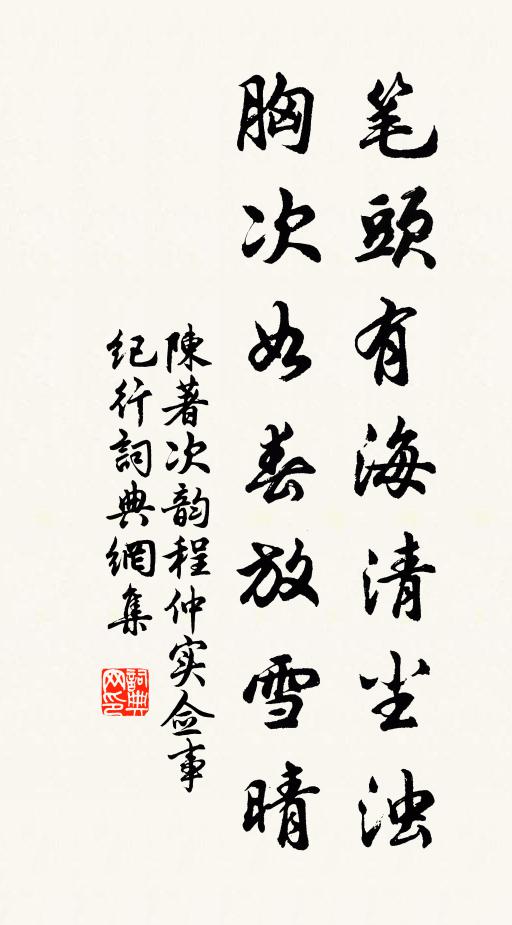 笔頭有海清尘浊
胸次如春放雪晴
陳著次韵程仲实佥事
纪行詞典網集
詞典网印